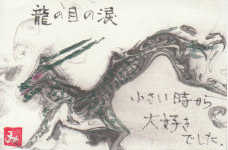 龍の目の涙
小さい時から
大好き
でした。